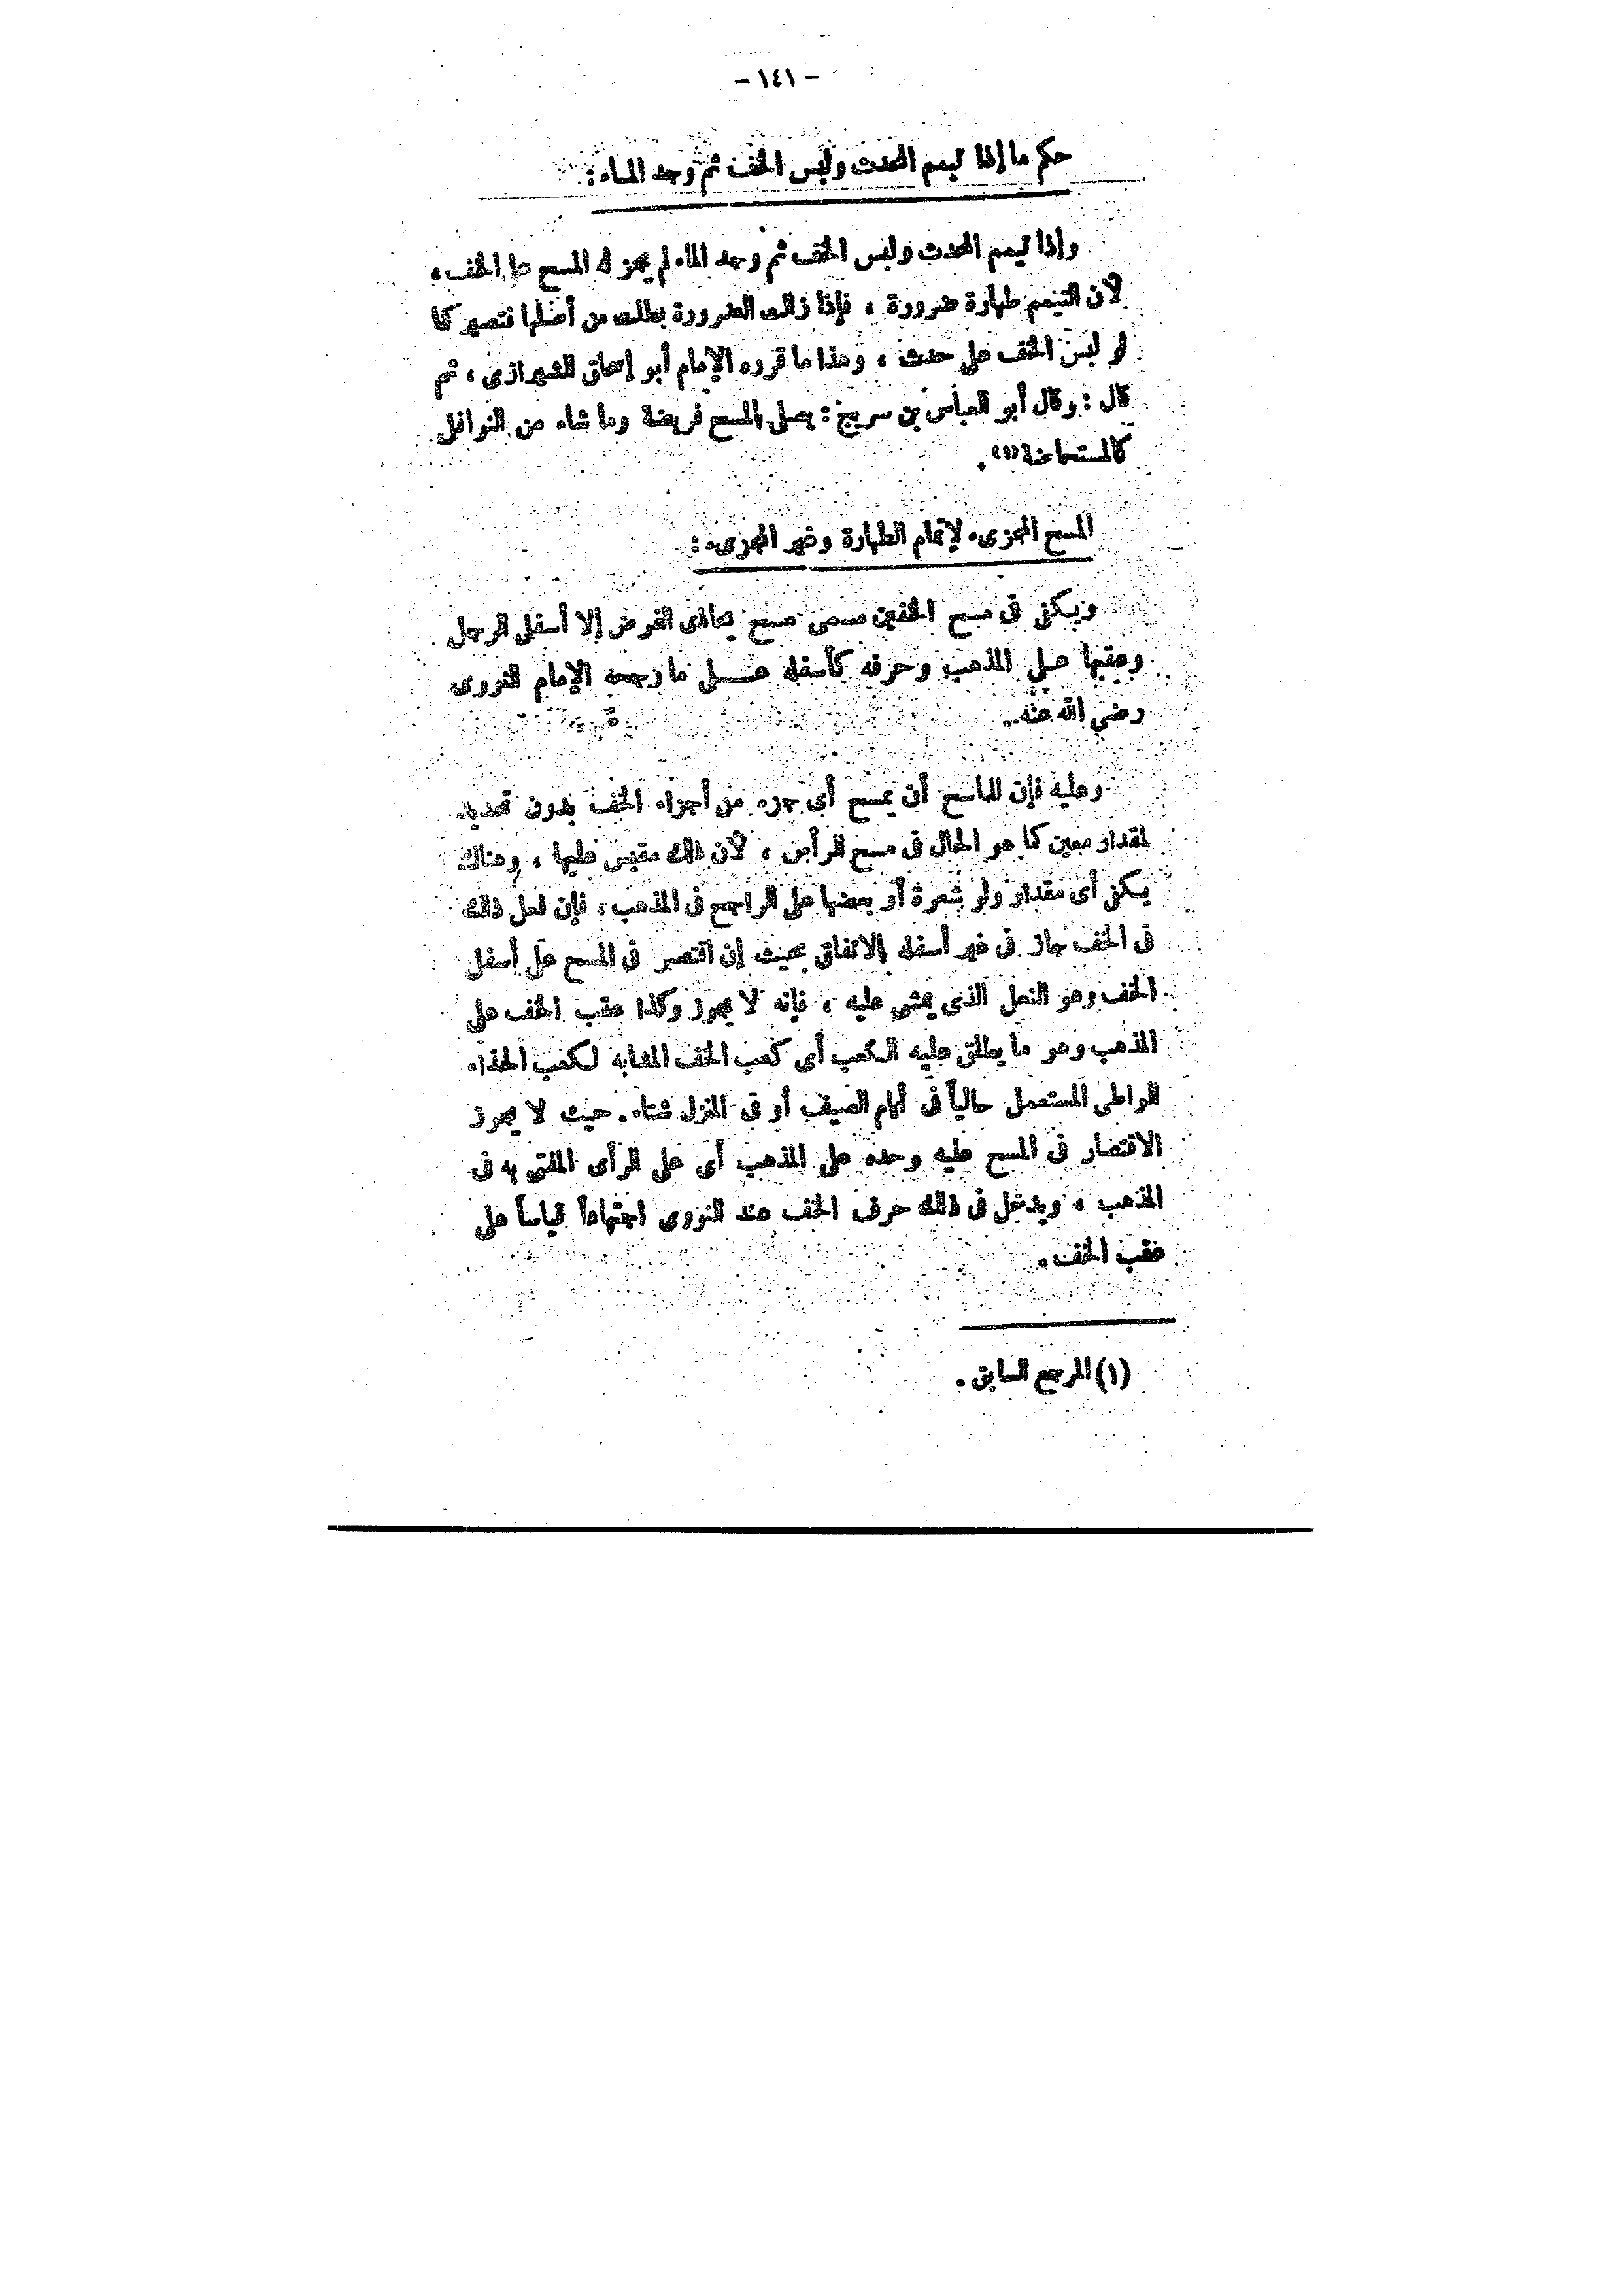 - ١٤١ -
حكم ما إذا تيمم المحدث ولبس الخف ثم وجد الماء :
وإذا تيمم المحدث ولبس الخف ثم وجد الماء لم يجز له المسح على الخف ،
لأن التيمم طهارة ضرورة ، فإذا زالت الضرورة بطلت من أصلها فتصير كما
لو لبس الخف على حدث ، وهذا ما قرره الإمام أبو إسحاق الشيرازى ، ثم
قال : وقال أبو العباس بن سريج : يصلى بالمسح فريضة وما شاء من النوافل
كالمستحاضة (١) .
المسح المجزىء لإتمام الطهارة وغير المجزىء :
ويكفى فى مسح الخفين مسمى مسح يحاذى الفرض إلا أسفل الرجل
وعقبها على المذهب وحرفه كأسفله على ما رجحه الإمام النووى
رضى الله عنه .
وعليه فإن للماسح أن يمسح أى جزء من أجزاء الخف بدون تحديد
لمقدار معين كما هو الحال فى مسح الرأس ، لأن ذلك مقيس عليها ، وهناك
يكفى أى مقدار ولو شعرة أو بعضها على الراجح فى المذهب ، فإن فعل ذلك
فى الخف جاز فى غير أسفله بالاتفاق بحيث إن اقتصر فى المسح على أسفل
الخف وهو النعل الذى يمشى عليه ، فإنه لا يجوز وكذا عقب الخف على
المذهب وهو ما يطلق عليه الكعب أى كعب الخف المشابه لكعب الحذاء
الواطى المستعمل حالياً فى أيام الصيف أو فى المنزل شتاء . حيث لا يجوز
الاقتصار فى المسح عليه وحده على المذهب أى على الرأى المفتى به فى
المذهب ، ويدخل فى ذلك حرف الخف عند النووى اجتهاداً قياساً على
عقب الخف .
(١) المرجع السابق .